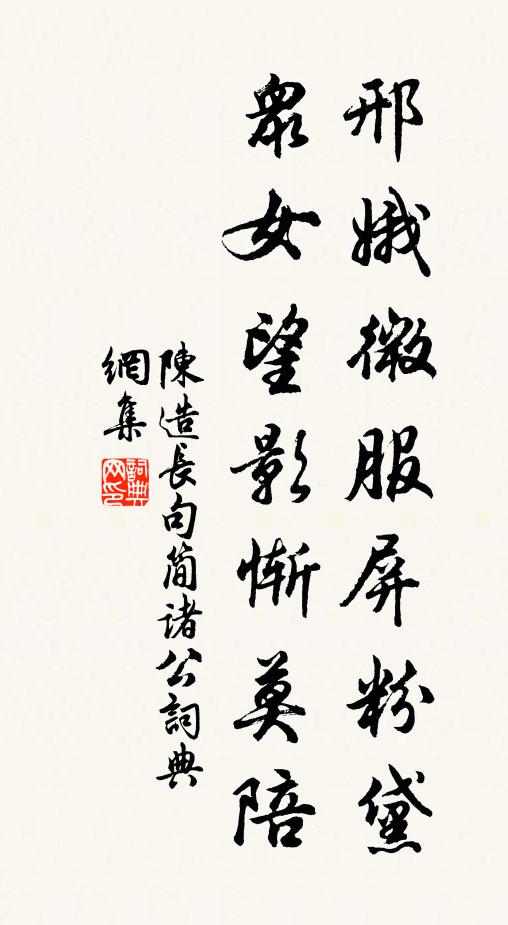 邢娥微服屏粉黛
眾女望影慚莫陪
陳造長句简诸公詞典
網集
詞典网印